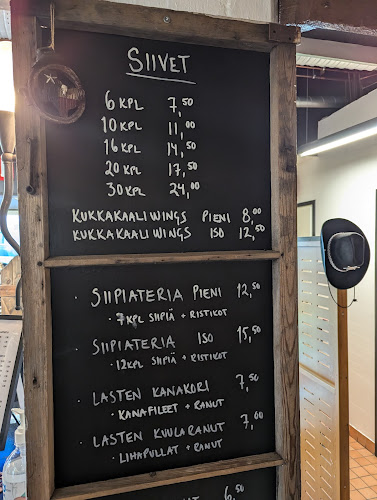 SIIVET
6 KPL 7,50
10 KPL 11,00
16 KPL 14,50
20 KPL 17,50
30 KPL 24,00
KUKKAKAALIWINGS PIENI 8,00
KUKKAKAALIWINGS ISO 12,50
· SIIPIATERIA PIENI 12,50
· 7 KPL SIIPIÄ + RISTIKOT
· SIIPIATERIA ISO 15,50
· 12 KPL SIIPIÄ + RISTIKOT
· LASTEN KANAKORI 7,50
· KANAFILEET + RANUT
· LASTEN KUULARANUT 7,00
· LIHAPULLAT + RANUT
6,50